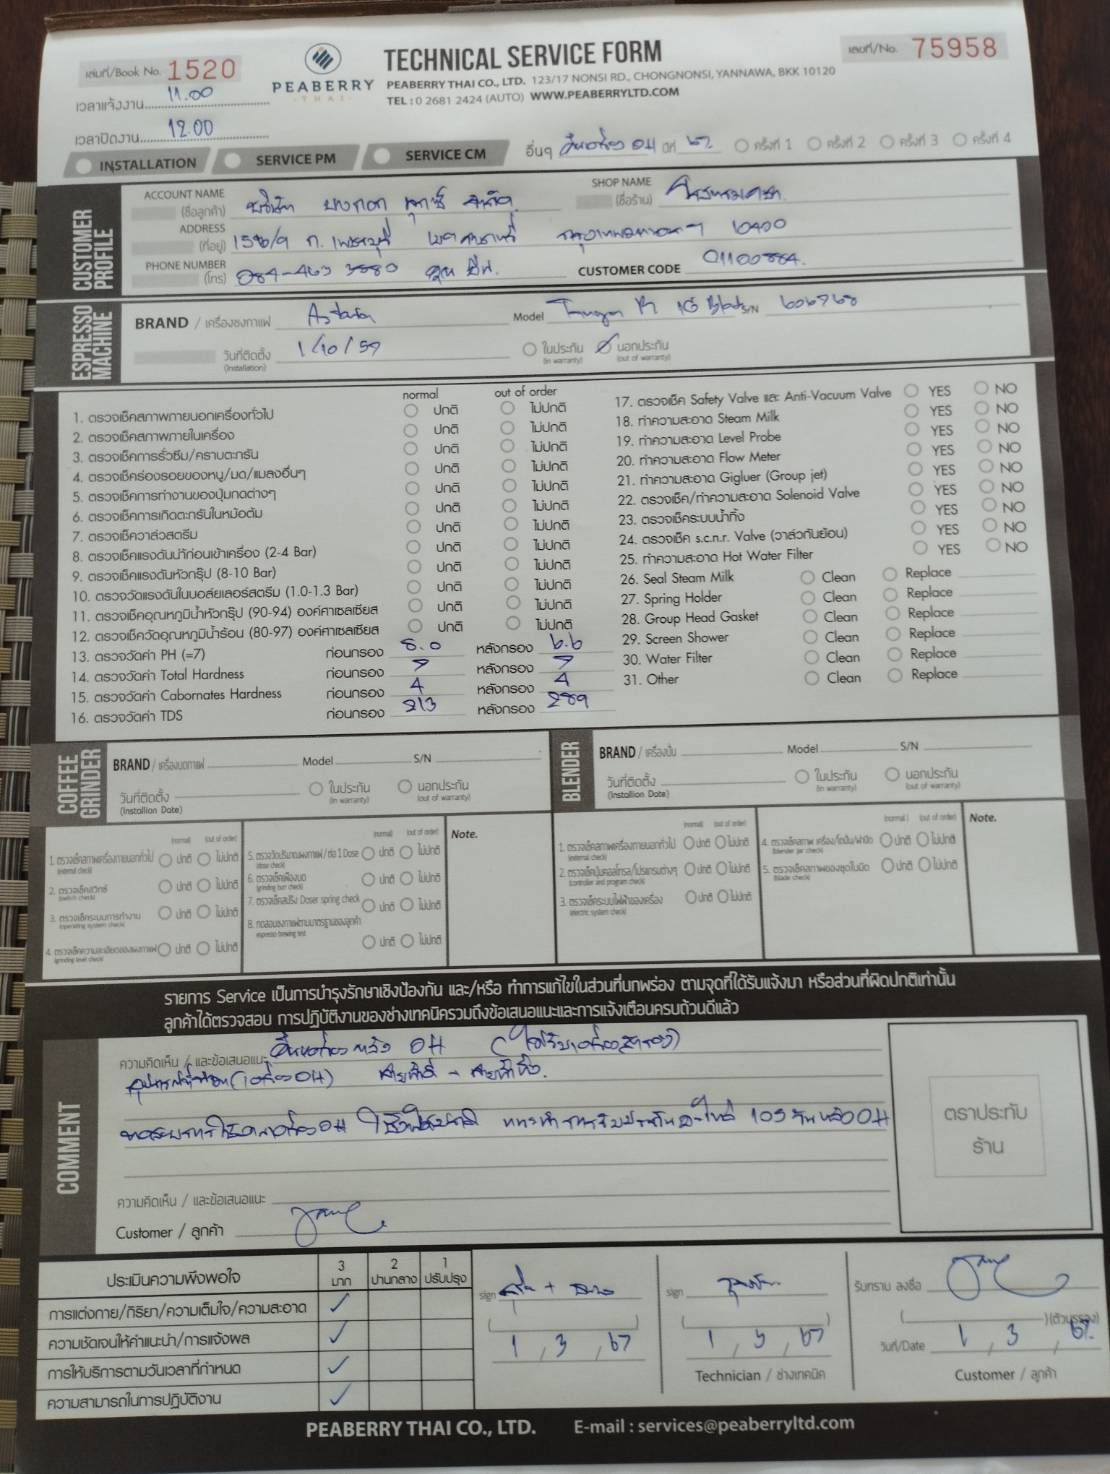 เล่มที่/Book No. 1520
PEABERRY
THAI
TECHNICAL SERVICE FORM
เลขที่/No. 75958
PEABERRY THAI CO., LTD. 123/17 NONSI RD., CHONGNONSI, YANNAWA, BKK 10120
TEL : 0 2681 2424 (AUTO) WWW.PEABERRYLTD.COM
เวลาแจ้งงาน 11.00
เวลาปิดงาน 12.00
INSTALLATION SERVICE PM SERVICE CM อื่นๆ คืนเครื่อง OH ปีที่ 67 ครั้งที่ 1 ครั้งที่ 2 ครั้งที่ 3 ครั้งที่ 4
CUSTOMER PROFILE
ACCOUNT NAME (ชื่อลูกค้า) บริษัท จำกัด
SHOP NAME (ชื่อร้าน)
ADDRESS (ที่อยู่) ถ.เพชรบุรี เขตราชเทวี กรุงเทพมหานครฯ 10400
PHONE NUMBER (โทร) 084-463 3580 คุณ
CUSTOMER CODE 01100884
ESPRESSO MACHINE
BRAND / เครื่องชงกาแฟ Astoria Model 1G Black S/N 606768
วันที่ติดตั้ง (Installation) 1/10/59 ในประกัน (in warranty) นอกประกัน (out of warranty)
normal out of order
1. ตรวจเช็คสภาพภายนอกเครื่องทั่วไป ปกติ ไม่ปกติ
2. ตรวจเช็คสภาพภายในเครื่อง ปกติ ไม่ปกติ
3. ตรวจเช็คการรั่วซึม/คราบตะกรัน ปกติ ไม่ปกติ
4. ตรวจเช็คร่องรอยของหนู/มด/แมลงอื่นๆ ปกติ ไม่ปกติ
5. ตรวจเช็คการทำงานของปุ่มกดต่างๆ ปกติ ไม่ปกติ
6. ตรวจเช็คการเกิดตะกรันในหม้อต้ม ปกติ ไม่ปกติ
7. ตรวจเช็ควาล์วสตรีม ปกติ ไม่ปกติ
8. ตรวจเช็คแรงดันน้ำก่อนเข้าเครื่อง (2-4 Bar) ปกติ ไม่ปกติ
9. ตรวจเช็คแรงดันหัวกรุ๊ป (8-10 Bar) ปกติ ไม่ปกติ
10. ตรวจวัดแรงดันในบอล์ยเลอร์สตรีม (1.0-1.3 Bar) ปกติ ไม่ปกติ
11. ตรวจเช็คอุณหภูมิน้ำหัวกรุ๊ป (90-94) องศาเซลเซียส ปกติ ไม่ปกติ
12. ตรวจเช็ควัดอุณหภูมิน้ำร้อน (80-97) องศาเซลเซียส ปกติ ไม่ปกติ
13. ตรวจวัดค่า PH (=7) ก่อนกรอง 8.0 หลังกรอง 6.6
14. ตรวจวัดค่า Total Hardness ก่อนกรอง 7 หลังกรอง 7
15. ตรวจวัดค่า Cabornates Hardness ก่อนกรอง 4 หลังกรอง 4
16. ตรวจวัดค่า TDS ก่อนกรอง 213 หลังกรอง 289
17. ตรวจเช็ค Safety Valve และ Anti-Vacuum Valve YES NO
18. ทำความสะอาด Steam Milk YES NO
19. ทำความสะอาด Level Probe YES NO
20. ทำความสะอาด Flow Meter YES NO
21. ทำความสะอาด Gigluer (Group jet) YES NO
22. ตรวจเช็ค/ทำความสะอาด Solenoid Valve YES NO
23. ตรวจเช็คระบบน้ำทิ้ง YES NO
24. ตรวจเช็ค s.c.n.r. Valve (วาล์วกันย้อน) YES NO
25. ทำความสะอาด Hot Water Filter YES NO
26. Seal Steam Milk Clean Replace
27. Spring Holder Clean Replace
28. Group Head Gasket Clean Replace
29. Screen Shower Clean Replace
30. Water Filter Clean Replace
31. Other Clean Replace
COFFEE GRINDER
BRAND / เครื่องบดกาแฟ Model S/N
วันที่ติดตั้ง (Installion Date) ในประกัน (in warranty) นอกประกัน (out of warranty)
BLENDER
BRAND / เครื่องปั่น Model S/N
วันที่ติดตั้ง (Installion Date) ในประกัน (in warranty) นอกประกัน (out of warranty)
(normal) (out of order) (normal) (out of order) Note.
1. ตรวจเช็คสภาพเครื่องภายนอกทั่วไป ปกติ ไม่ปกติ
(external check)
2. ตรวจเช็คสวิทช์ ปกติ ไม่ปกติ
(switch check)
3. ตรวจเช็คระบบการทำงาน ปกติ ไม่ปกติ
(operating system check)
4. ตรวจเช็คความละเอียดของผงกาแฟ ปกติ ไม่ปกติ
(grinding level check)
5. ตรวจวัดปริมาณผงกาแฟ / ต่อ 1 Dose ปกติ ไม่ปกติ
(dose check)
6. ตรวจเช็คเฟืองบด ปกติ ไม่ปกติ
(grinding burr check)
7. ตรวจเช็คสปริง Doser spring check ปกติ ไม่ปกติ
8. ทดสอบชงกาแฟตามมาตรฐานของลูกค้า
espresso brewing test ปกติ ไม่ปกติ
(normal) (out of order) (normal) (out of order) Note.
1. ตรวจเช็คสภาพเครื่องภายนอกทั่วไป ปกติ ไม่ปกติ
(external check)
2. ตรวจเช็คปุ่มคอลโทรล/โปรแกรมต่างๆ ปกติ ไม่ปกติ
(controller and program check)
3. ตรวจเช็คระบบไฟฟ้าของเครื่อง ปกติ ไม่ปกติ
(electric system check)
4. ตรวจเช็คสภาพ เครื่อง/โถปั่น/ฝาปิด ปกติ ไม่ปกติ
(blender jar check)
5. ตรวจเช็คสภาพของชุดใบมีด ปกติ ไม่ปกติ
(Blade check)
รายการ Service เป็นการบำรุงรักษาเชิงป้องกัน และ/หรือ ทำการแก้ไขในส่วนที่บกพร่อง ตามจุดที่ได้รับแจ้งมา หรือส่วนที่ผิดปกติเท่านั้น
ลูกค้าได้ตรวจสอบ การปฏิบัติงานของช่างเทคนิครวมถึงข้อเสนอแนะและการแจ้งเตือนครบถ้วนดีแล้ว
COMMENT
ความคิดเห็น / และข้อเสนอแนะ คืนเครื่องหลัง OH (ได้รับเครื่องสำรอง)
อุปกรณ์ที่ (เครื่อง OH) สายน้ำดี - สายน้ำทิ้ง
OH 109 วันหลัง OH
ความคิดเห็น / และข้อเสนอแนะ
Customer / ลูกค้า
ตราประทับ
ร้าน
ประเมินความพึงพอใจ 3 มาก 2 ปานกลาง 1 ปรับปรุง
การแต่งกาย/กิริยา/ความเต็มใจ/ความสะอาด ✓
ความชัดเจนให้คำแนะนำ/การแจ้งผล ✓
การให้บริการตามวันเวลาที่กำหนด ✓
ความสามารถในการปฏิบัติงาน ✓
sign
1 , 3 , 67
sign
1 , 3 , 67
Technician / ช่างเทคนิค
รับทราบ ลงชื่อ
(ตัวบรรจง)
วันที่/Date 1 , 3 , 67
Customer / ลูกค้า
PEABERRY THAI CO., LTD. E-mail : services@peaberryltd.com